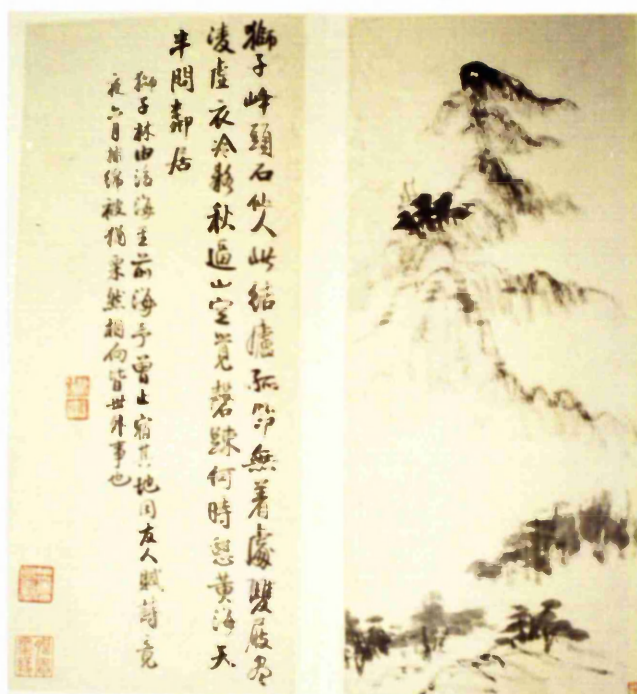 獅子峰頭石仙人此結廬孤筇無着處雙屐
凌虛衣冷疑秋逼山空覺磬踈何時憩黃海天
半問鄰居
獅子林由後海至前海予曾止宿其地同友人賦詩竟
夜六月擁綿被然相向皆世外事也